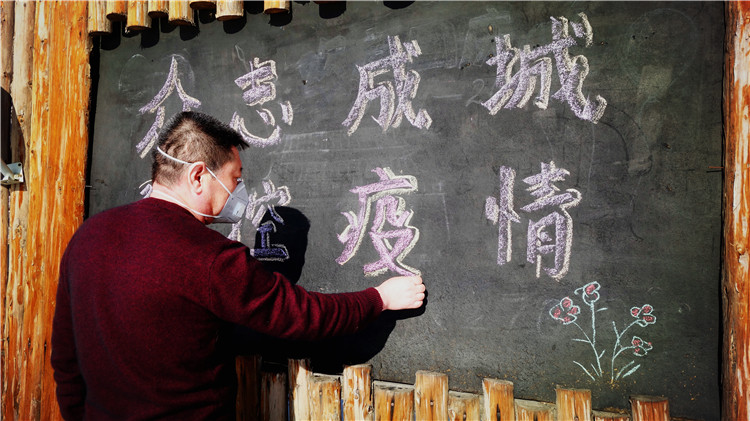 众志成城
控疫情